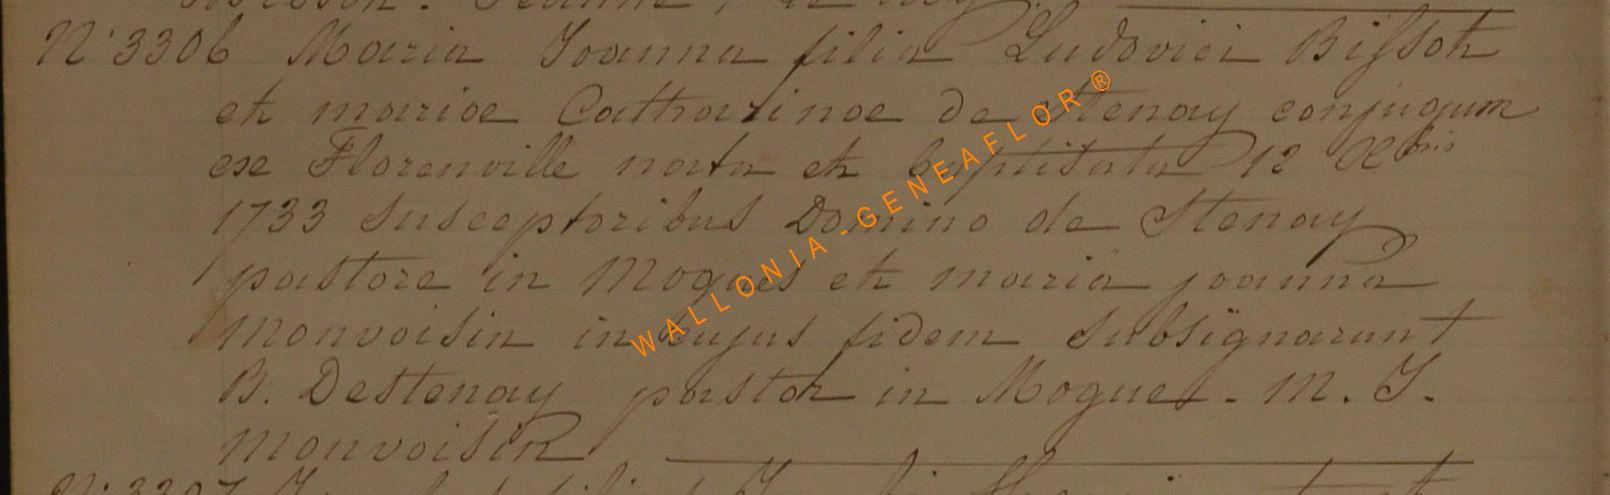 N° 3306 Maria Joanna filia Ludovici Bissot
et mariae Catharinae de Stenay conjugum
ex Florenville nata et baptisata 12 Xbris
1733 Susceptoribus Domino de Stenay
pastore in Mogues et maria joanna
Monvoisin in cujus fidem subsignarunt
B. Destenay pastor in Mogues - M. J.
Monvoisin
WALLONIA - GENEAFLOR ®